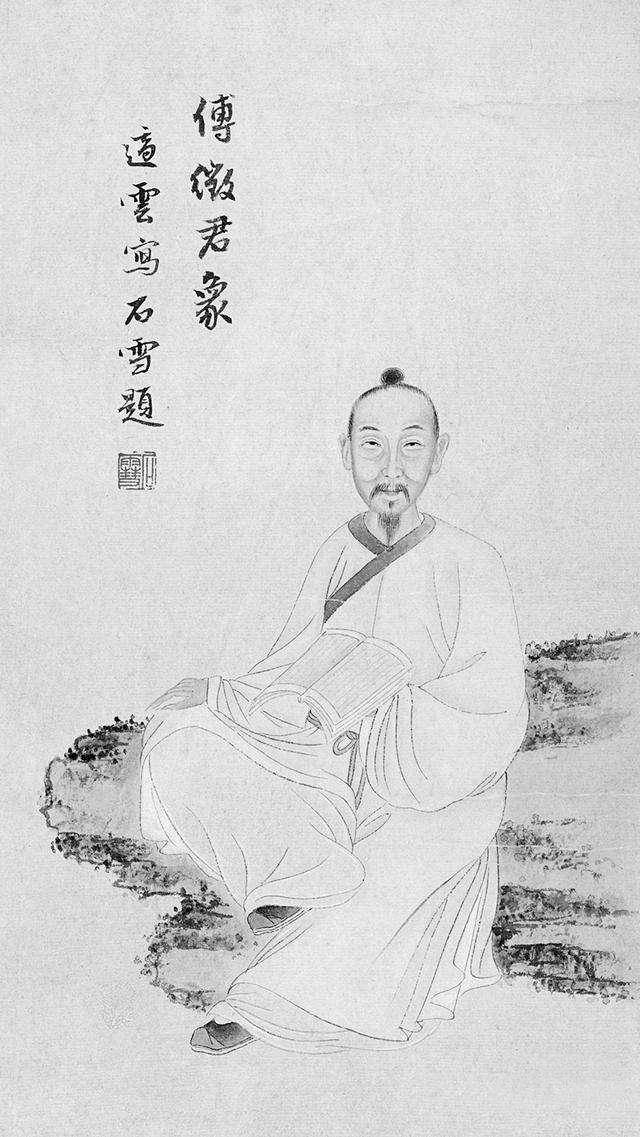 傅徵君象
適雲寫石雪題